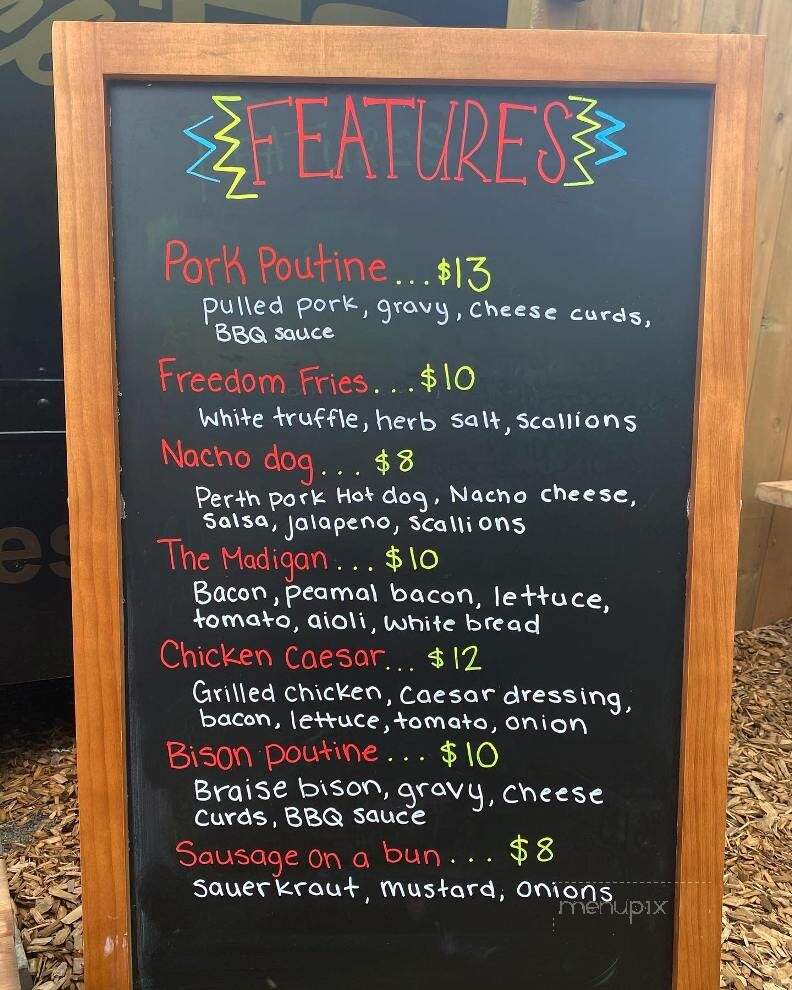 FEATURES
Pork Poutine...$13
pulled pork, gravy, cheese curds,
BBQ sauce
Freedom Fries...$10
White truffle, herb salt, scallions
Nacho dog... $8
Perth pork Hot dog, Nacho cheese,
Salsa, jalapeno, scallions
The Madigan... $10
Bacon, peamal bacon, lettuce,
tomato, aioli, white bread
Chicken Caesar... $12
Grilled chicken, Caesar dressing,
bacon, lettuce, tomato, onion
Bison poutine... $10
Braise bison, gravy, cheese
curds, BBQ sauce
Sausage on a bun... $8
sauerkraut, mustard, onions
menupix
es